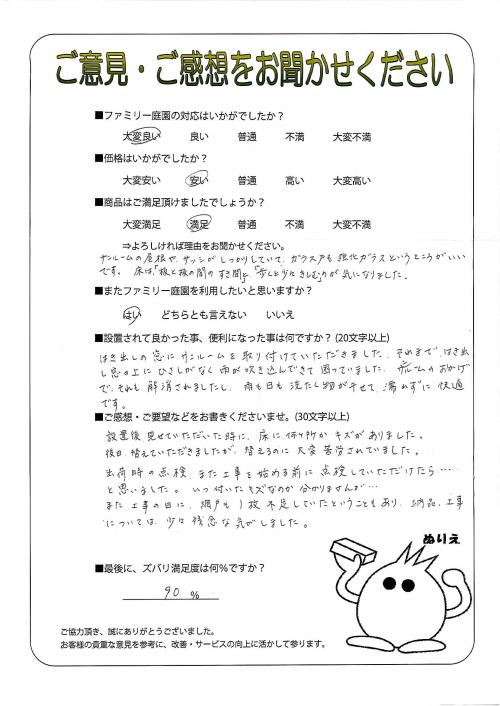 ご意見・ご感想をお聞かせください
■ファミリー庭園の対応はいかがでしたか？
大変良い 良い 普通 不満 大変不満
■価格はいかがでしたか？
大変安い 安い 普通 高い 大変高い
■商品はご満足頂けましたでしょうか？
大変満足 満足 普通 不満 大変不満
⇒よろしければ理由をお聞かせください。
サンルームの屋根や、サッシがしっかりしていて、ガラス戸も強化ガラスというところがいい
です。床は、「板と板の間のすき間」、「歩くと少々きしむ」のが気になりました。
■またファミリー庭園を利用したいと思いますか？
はい どちらとも言えない いいえ
■設置されて良かった事、便利になった事は何ですか？(20文字以上)
はき出しの窓にサンルームを取り付けていただきました。それまで、はき出
し窓の上にひさしがなく雨が吹き込んできて困っていました。サンルームのおかげ
で、それも解消されましたし、雨も日も洗たく物が干せて、濡れずに快適
です。
■ご感想・ご要望などをお書きくださいませ。(30文字以上)
設置後見せていただいた時に、床に何ヶ所かキズがありました。
後日、替えていただきましたが、替えるのに大変苦労されていました。
出荷時の点検、また工事を始める前に点検していただけたら……
と思いました。いつ付いたキズなのか分かりませんが…
また工事の日に、網戸も1枚不足していたということもあり、納品、工事
については、少々残念な気がしました。
ぬりえ
■最後に、ズバリ満足度は何％ですか？
90 ％
ご協力頂き、誠にありがとうございました。
お客様の貴重な意見を参考に、改善・サービスの向上に活かして参ります。